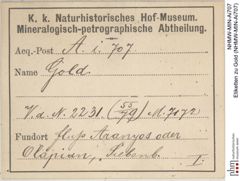 K. k. Naturhistorisches Hof-Museum.
Mineralogisch-petrographische Abtheilung.
Acq.-Post A. i. 707
Name Gold.
V. d. N. 2231. (55/79) M. 7172
Fundort Fluss Aranyos oder
Olapian, Siebenb.
I.
NHMW-MIN-A/707
Etiketten zu Gold (NHMW-MIN-A/707)